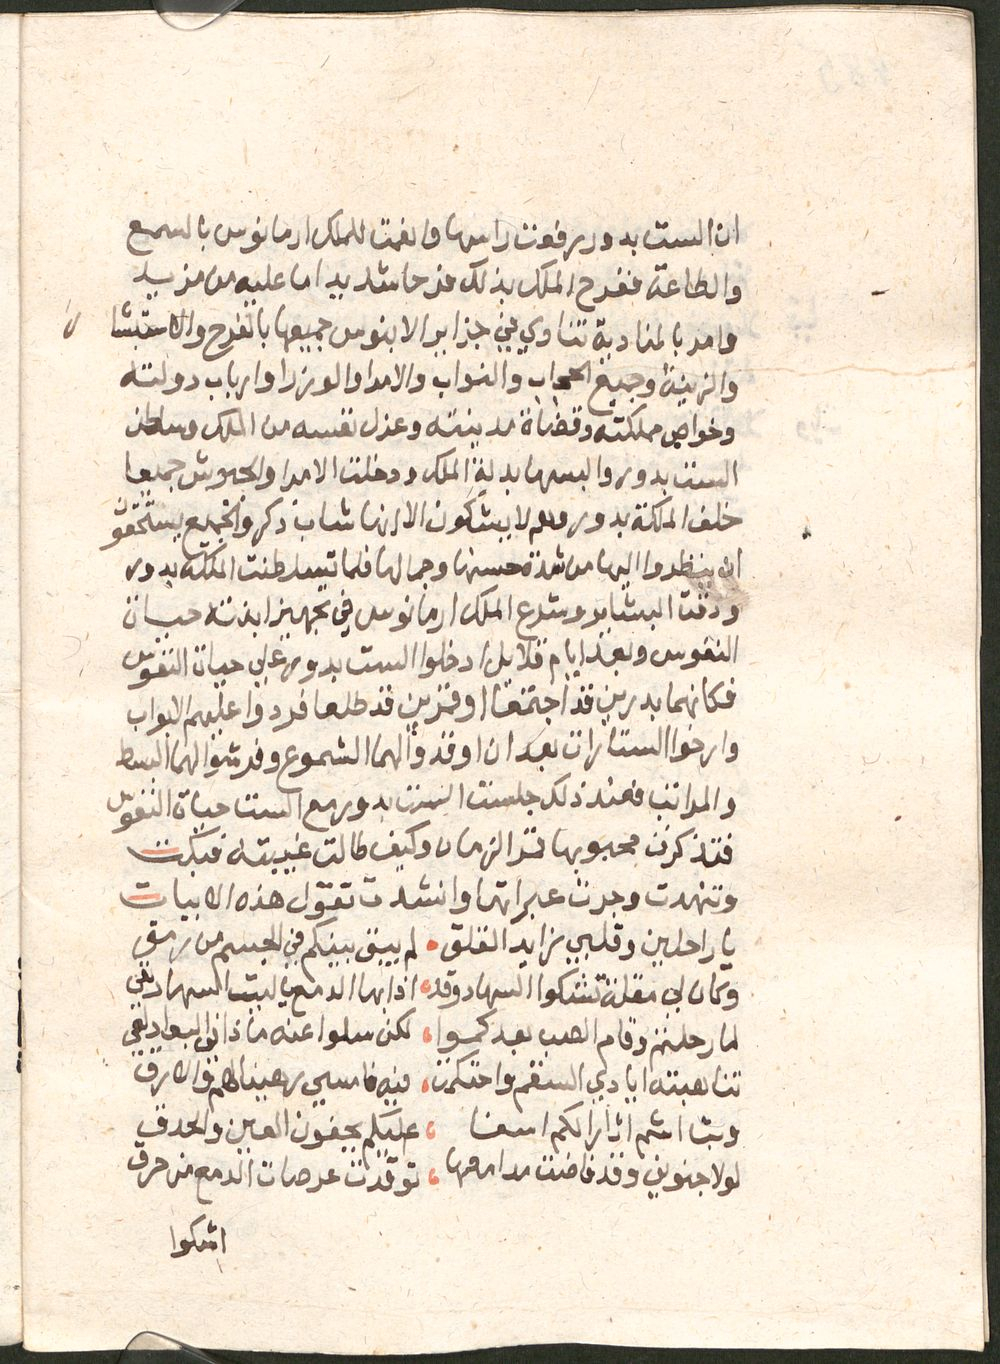 ان الست بدور رفعت راسها وانعمت للملك ارمانوس بالسمع
والطاعة ففرح الملك بذلك فرحا شديدا ما عليه من مزيد
وامر بالمنادية تنادي في جزاير الابنوس جميعها بالفرح والاستبشار
والزينة وجميع الحجاب والنواب والامرا والوزرا وارباب دولته
وخواص مملكته وقضاة مدينته وعزل نفسه من الملك وسلطن
الست بدور والبسها بدلة الملك ودخلت الامرا والجيوش جميعا
خلف الملكة بدور وهم لا يشكون الا انها شاب ذكر والجميع يستحقون
ان ينظروا اليها من شدة حسنها وجمالها فلما تسلطنت الملكة بدور
ودقت البشاير وشرع الملك ارمانوس في تجهيز ابنته حياة
النفوس وبعد ايام قلايل ادخلوا الست بدور على حياة النفوس
فكانهما بدرين قد اجتمعا او قمرين قد طلعا فردوا عليهم الابواب
وارخوا الستارات بعد ان اوقدوا لهما الشموع وفرشوا لهما البسط
والمراتب فعند ذلك جلست الست بدور مع الست حياة النفوس
فتذكرت محبوبها قمر الزمان وكيف طالت غيبته فبكت
وتنهدت وجرت عبراتها وانشدت تقول هذه الابيات
يا راحلين وقلبي زايد القلق • لم يبق بينكم في الجسم من رمق
وكان لي مقلة تشكوا السهاد وقد • اذابها الدمع يا ليت السهاد بقي
لما رحلتم وقام الصب بعدكموا • لكن سلوا عنه ماذا في البعاد لقي
تناهبته ايادي السقم واحتكمت • فيه فامسي رهين الهم والارق
وبت اشم اثارا لكم اسفا • عليكم بجفون العين والحدق
لولا جفوني وقد فاضت مدامعها • توقدت عرصات الدمع من حرق
اشكوا